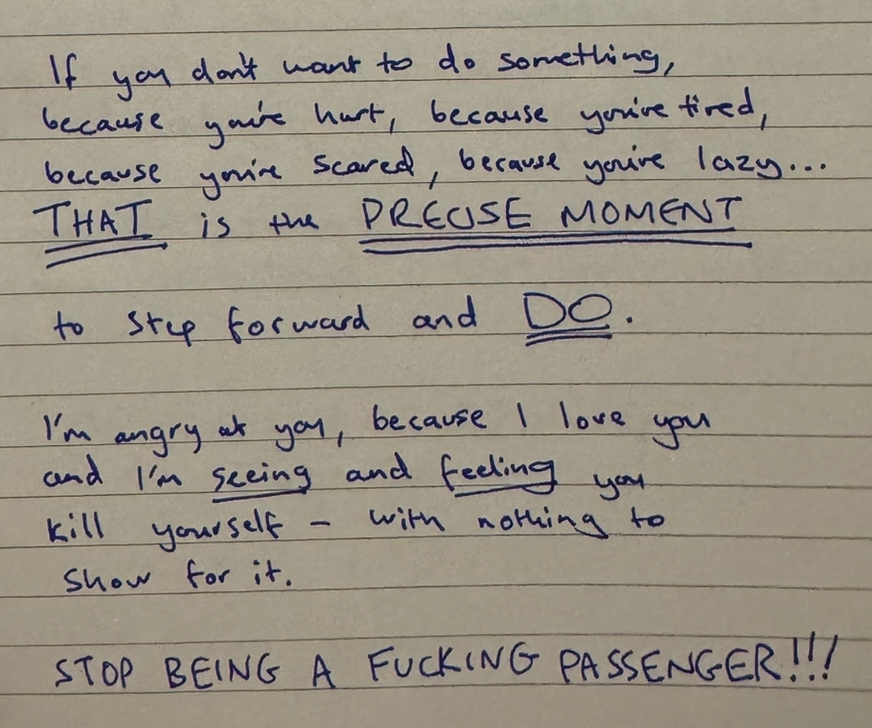 If you don't want to do something,
because you're hurt, because you're tired,
because you're scared, because you're lazy...
THAT is the PRECISE MOMENT
to step forward and DO.
I'm angry at you, because I love you
and I'm seeing and feeling you
kill yourself - with nothing to
show for it.
STOP BEING A FUCKING PASSENGER!!!